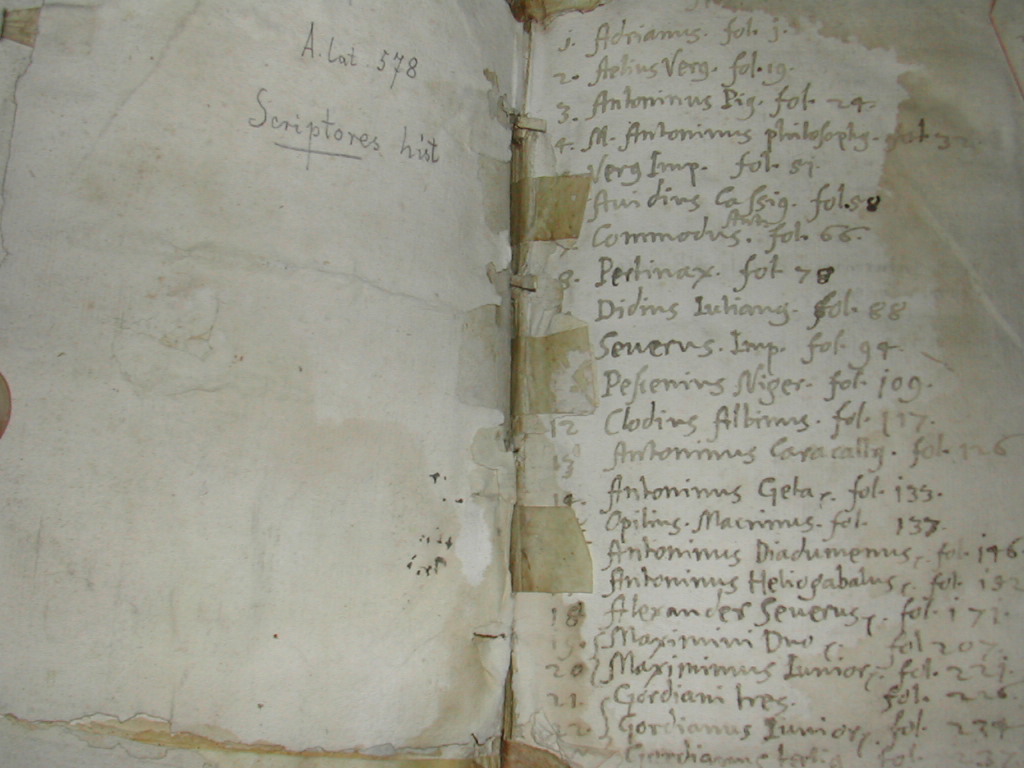 A. lat. 578
Scriptores hist
1. Adrianus. fol. 1.
2. Aelius Verꝰ. fol. 19.
3. Antoninus Piꝰ. fol. 24.
4. M. Antoninus philosophꝰ.
Verꝰ Imp. fol. 51.
Auidius Cassiꝰ. fol. 58
Commodus. fol. 66.
8. Pertinax. fol 78
Didius Iulianꝰ. fol. 88
Seuerus. Imp. fol. 94
Pescenius Niger. fol. 109.
12 Clodius Albinus. fol. 117.
13 Antoninus Caracallꝰ. fol. 126
14. Antoninus Geta. fol. 133.
Opilius. Macrinus. fol. 137.
Antoninus Diadumenus, fol. 146.
Antoninus Heliogabalus, fol. 152
18 Alexander Seuerus, fol. 171.
19. Maximini Duo. fol 207.
20 Maximinus Iunior, fol. 221.
21. Gordiani tres. fol. 226.
22 Gordianus Iunior, fol. 234
Gordianus fol. 237